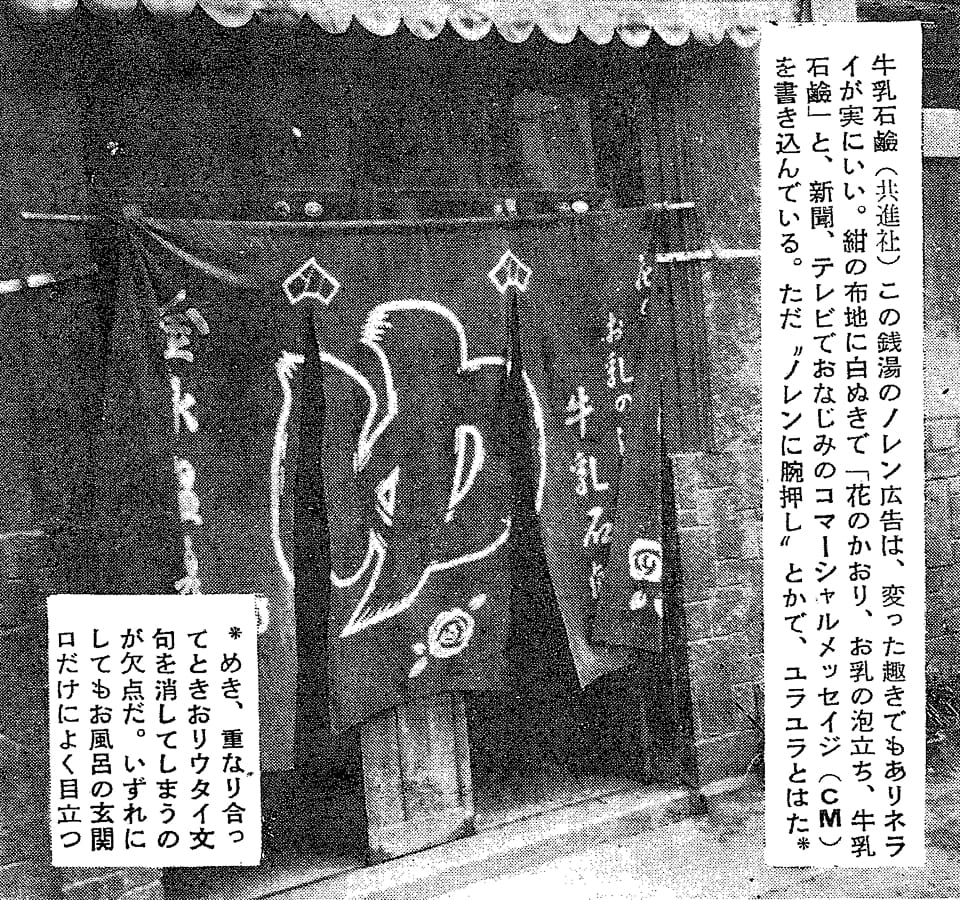 牛乳石鹼（共進社）この銭湯のノレン広告は、変った趣きでもありネラ
イが実にいい。紺の布地に白ぬきで「花のかおり、お乳の泡立ち、牛乳
石鹼」と、新聞、テレビでおなじみのコマーシャルメッセイジ（CM）
を書き込んでいる。ただ〝ノレンに腕押し〟とかで、ユラユラとはた*
お乳の
牛乳石
*めき、重なり合っ
てときおりウタイ文
句を消してしまうの
が欠点だ。いずれに
してもお風呂の玄関
口だけによく目立つ